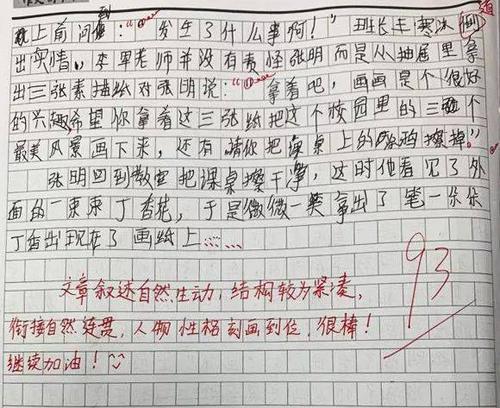 上前问到："发生了什么事啊！"班长王寒冰倒
出实情，李军老师并没有责怪张明而是从抽屉里拿
出三张素描纸对张明说："拿着吧，画画是个很好
的兴趣希望你拿着这三张纸把这个校园里的三个
最美风景画下来，还有请你把课桌上的擦掉。"
张明回到教室把课桌擦干净，这时他看见了外
面的一束束丁香花，于是微微一笑拿出了笔一朵朵
丁香出现在了画纸上……
93
文章叙述自然生动，结构较为紧凑，
衔接自然连贯，人物性格刻画到位，很棒！
继续加油！